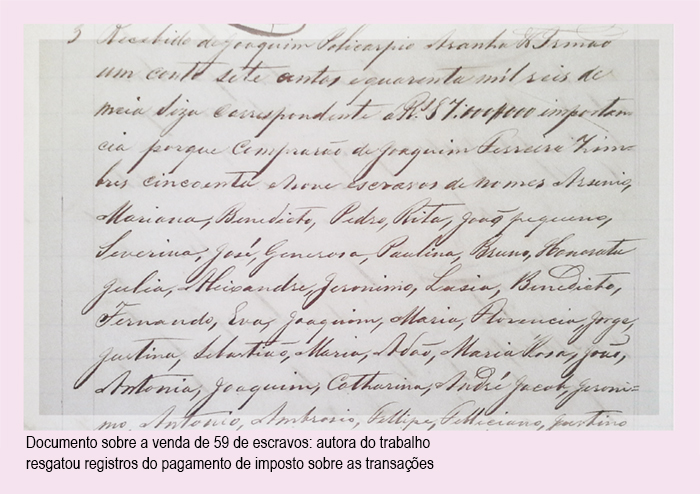 3 Recebido de Joaquim Policarpio Aranha & Irmão
um conto sete centos e quarenta mil reis de
meia siza correspondente a Rs 87.000$000 importan
cia porque comprarão de Joaquim Ferreira Zim-
bres cincoenta e nove escravos de nomes Arsenio,
Mariana, Benedicto, Pedro, Rita, João pequeno,
Severina, José, Generosa, Paulina, Bruno, Honorata
Julia, Aleixandre, Jeronimo, Luisa, Benedicto,
Fernando, Eva, Joaquim, Maria, Florencia, Jorge,
Justina, Sebastião, Maria, Adão, Maria Rosa, João,
Antonia, Joaquim, Catharina, André, Jacob, Jeroni-
mo, Antonio, Ambrosio, Fellipe, Felliciano, Justino
Documento sobre a venda de 59 de escravos: autora do trabalho
resgatou registros do pagamento de imposto sobre as transações